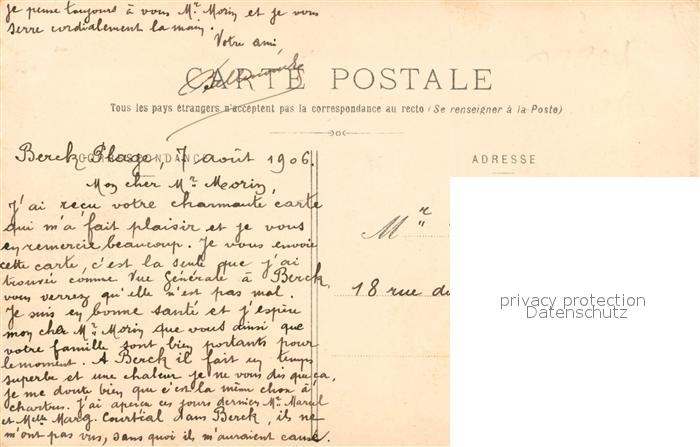 je pense toujours à vous Mr. Morin et je vous
serre cordialement la main.
Votre ami,
CARTE POSTALE
Tous les pays étrangers n'acceptent pas la correspondance au recto (Se renseigner à la Poste)
CORRESPONDANCE
ADRESSE
Berck Plage, 7 août 1906.
Mon cher Mr. Morin,
J'ai reçu votre charmante carte
qui m'a fait plaisir et je vous
en remercie beaucoup. Je vous envoie
cette carte, c'est la seule que j'ai
trouvée comme Vue Générale à Berck,
vous verrez qu'elle n'est pas mal.
Je suis en bonne santé et j'espère
mon cher Mr. Morin que vous ainsi que
votre famille sont bien portants pour
le moment. A Berck il fait un temps
superbe et une chaleur je ne vous dis que ça,
je me doute bien que c'est la même chose à
Chartres. J'ai aperçu ces jours derniers Mr. Marcel
et Melle Marg. Courtial dans Berck, ils ne
m'ont pas vus, sans quoi ils m'auraient causé.
Mr
18 rue du
privacy protection
Datenschutz